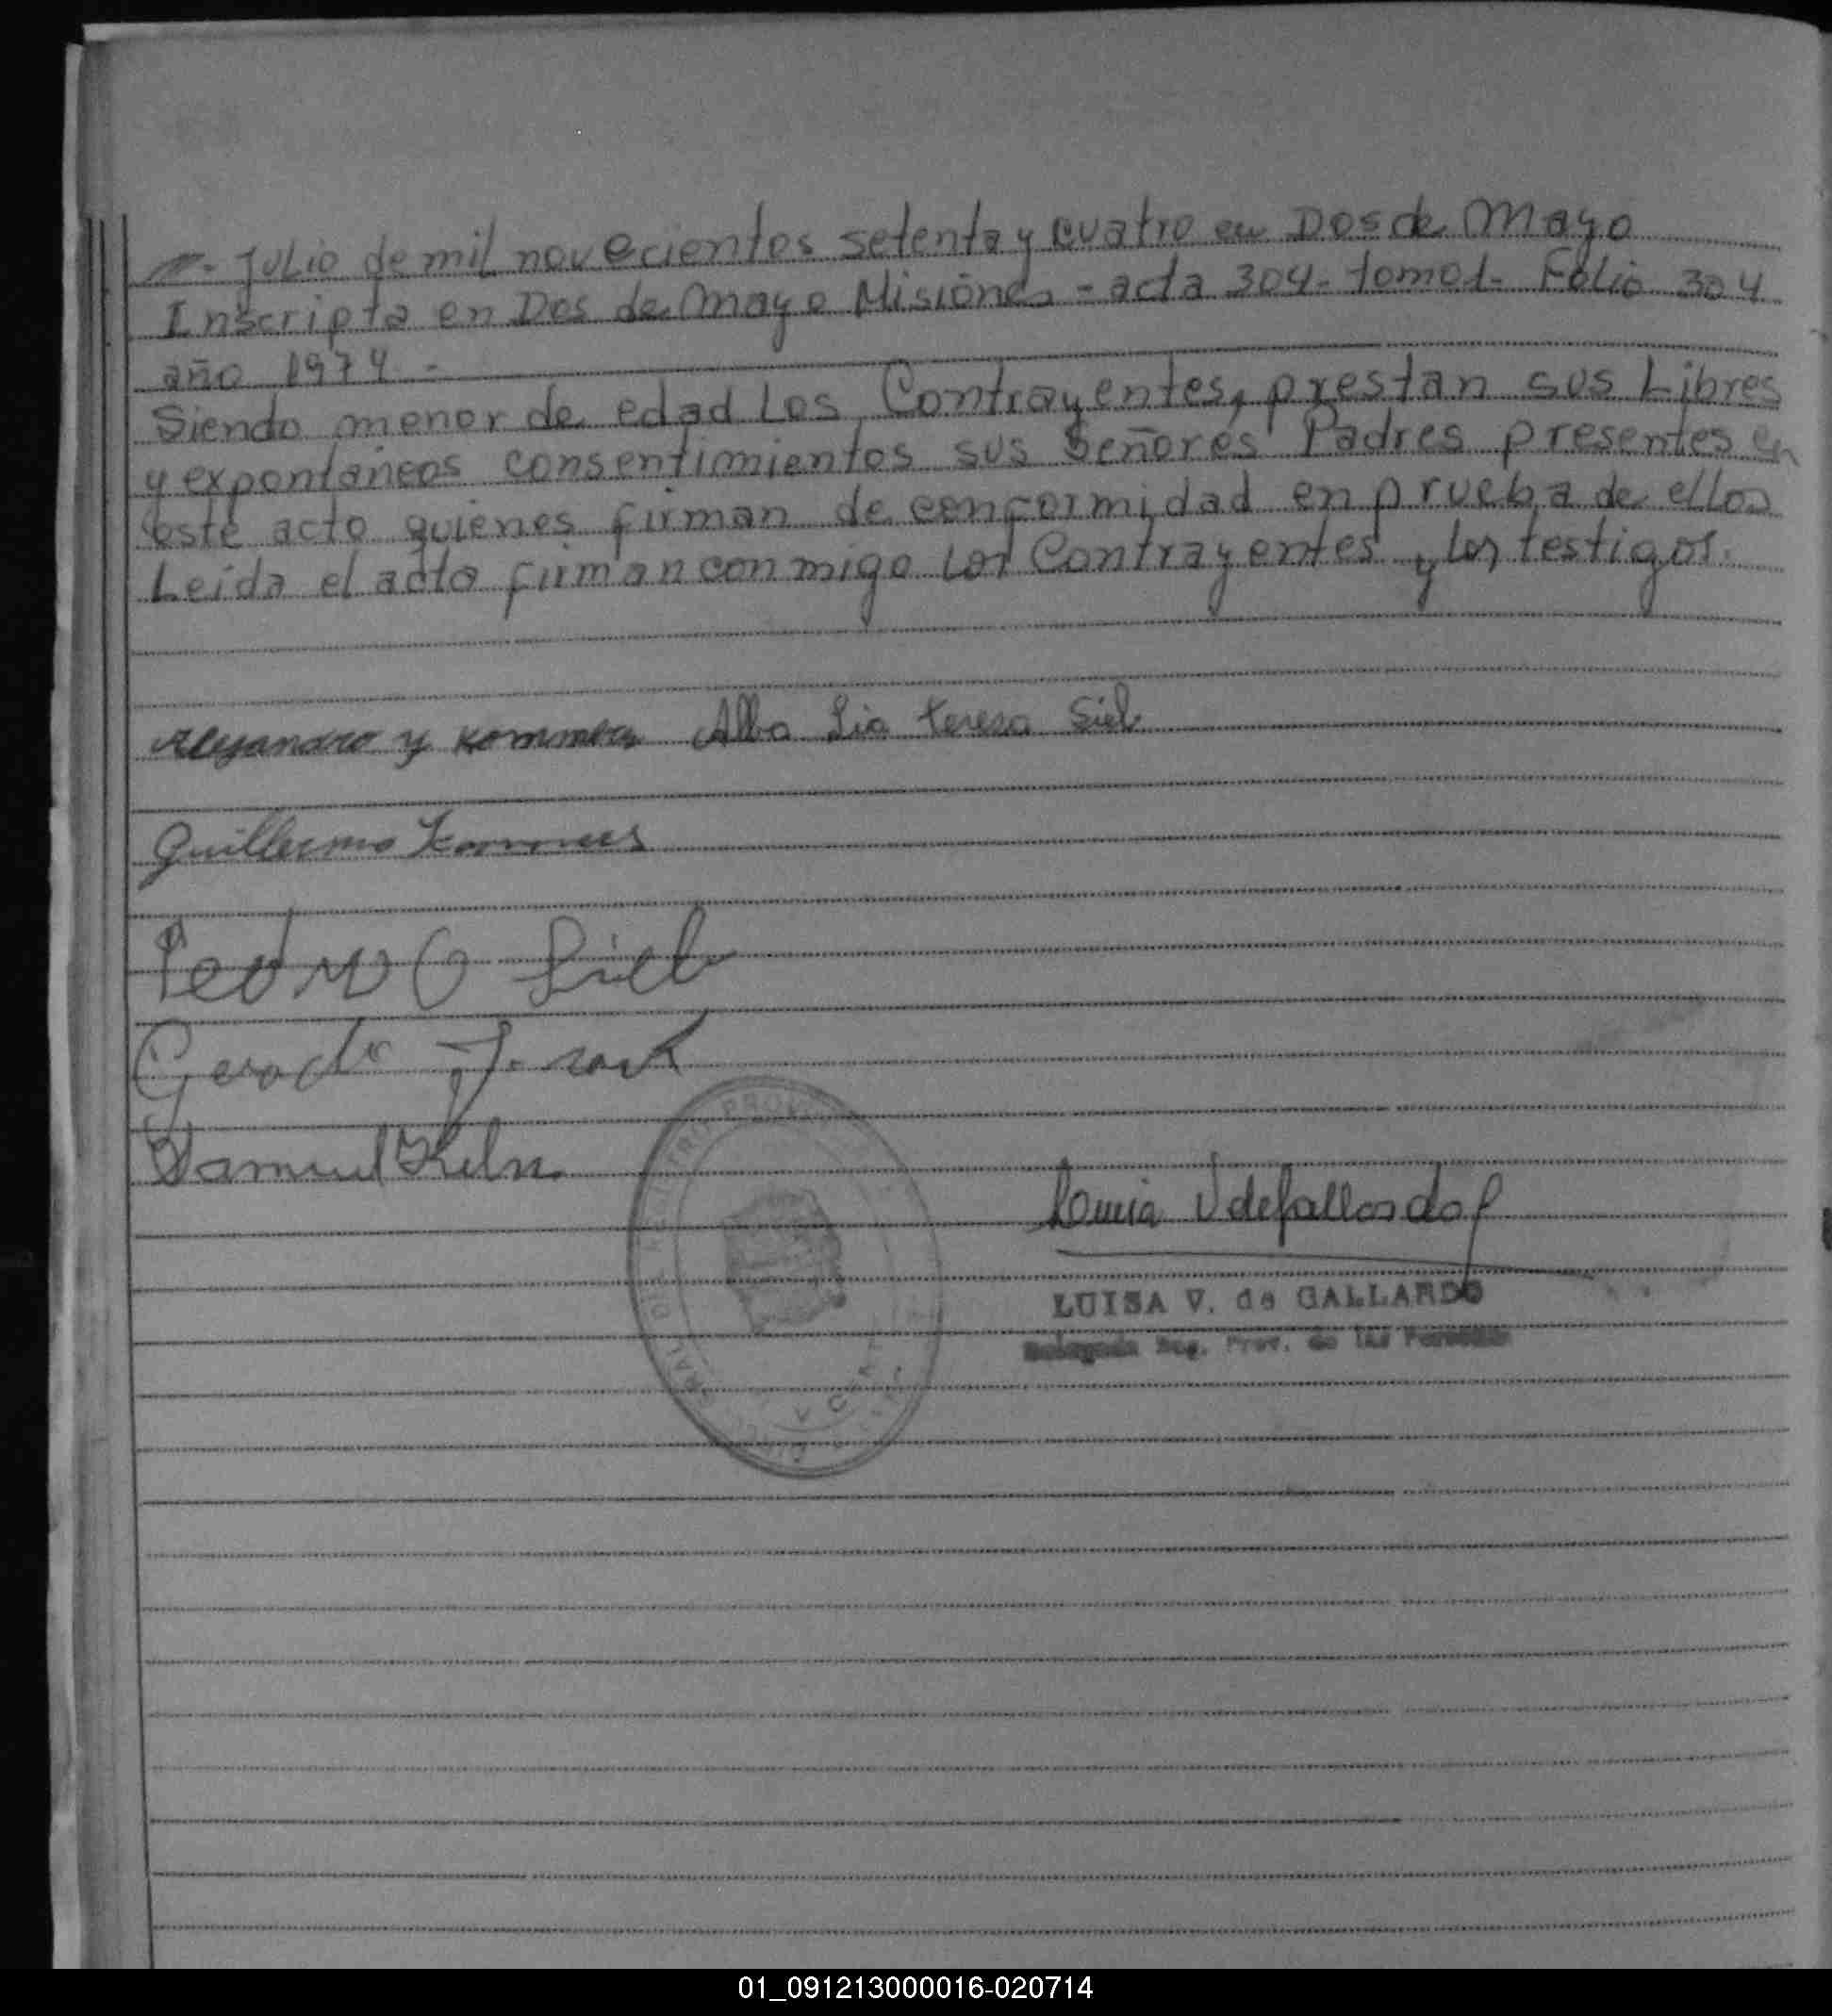 Julio de mil novecientos setenta y cuatro en Dos de Mayo
Inscripta en Dos de Mayo Misiones - acta 304 - tomo 1 - Folio 304
año 1974 -
Siendo menor de edad Los Contrayentes, prestan sus Libres
y expontáneos consentimientos sus Señores Padres presentes en
este acto quienes firman de conformidad en prueba de ellos
Leida el acta firman conmigo los Contrayentes y los testigos.
Alejandro y Kommers Alba Lia teresa Siel
Guillermo Kommers
Pedro O Siel
Samuel
LUISA V. de GALLARDO
Delegada Reg. Prov. de las Personas
01_091213000016-020714